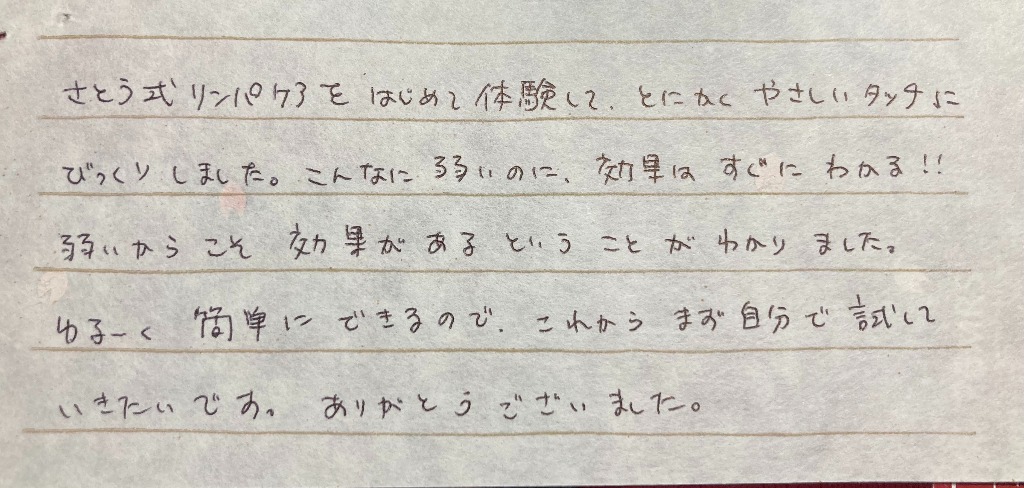 さとう式リンパケアをはじめて体験して、とにかくやさしいタッチに
びっくりしました。こんなに弱いのに、効果はすぐにわかる!!
弱いからこそ効果があるということがわかりました。
ゆるーく簡単にできるので、これからまず自分で試して
いきたいです。ありがとうございました。